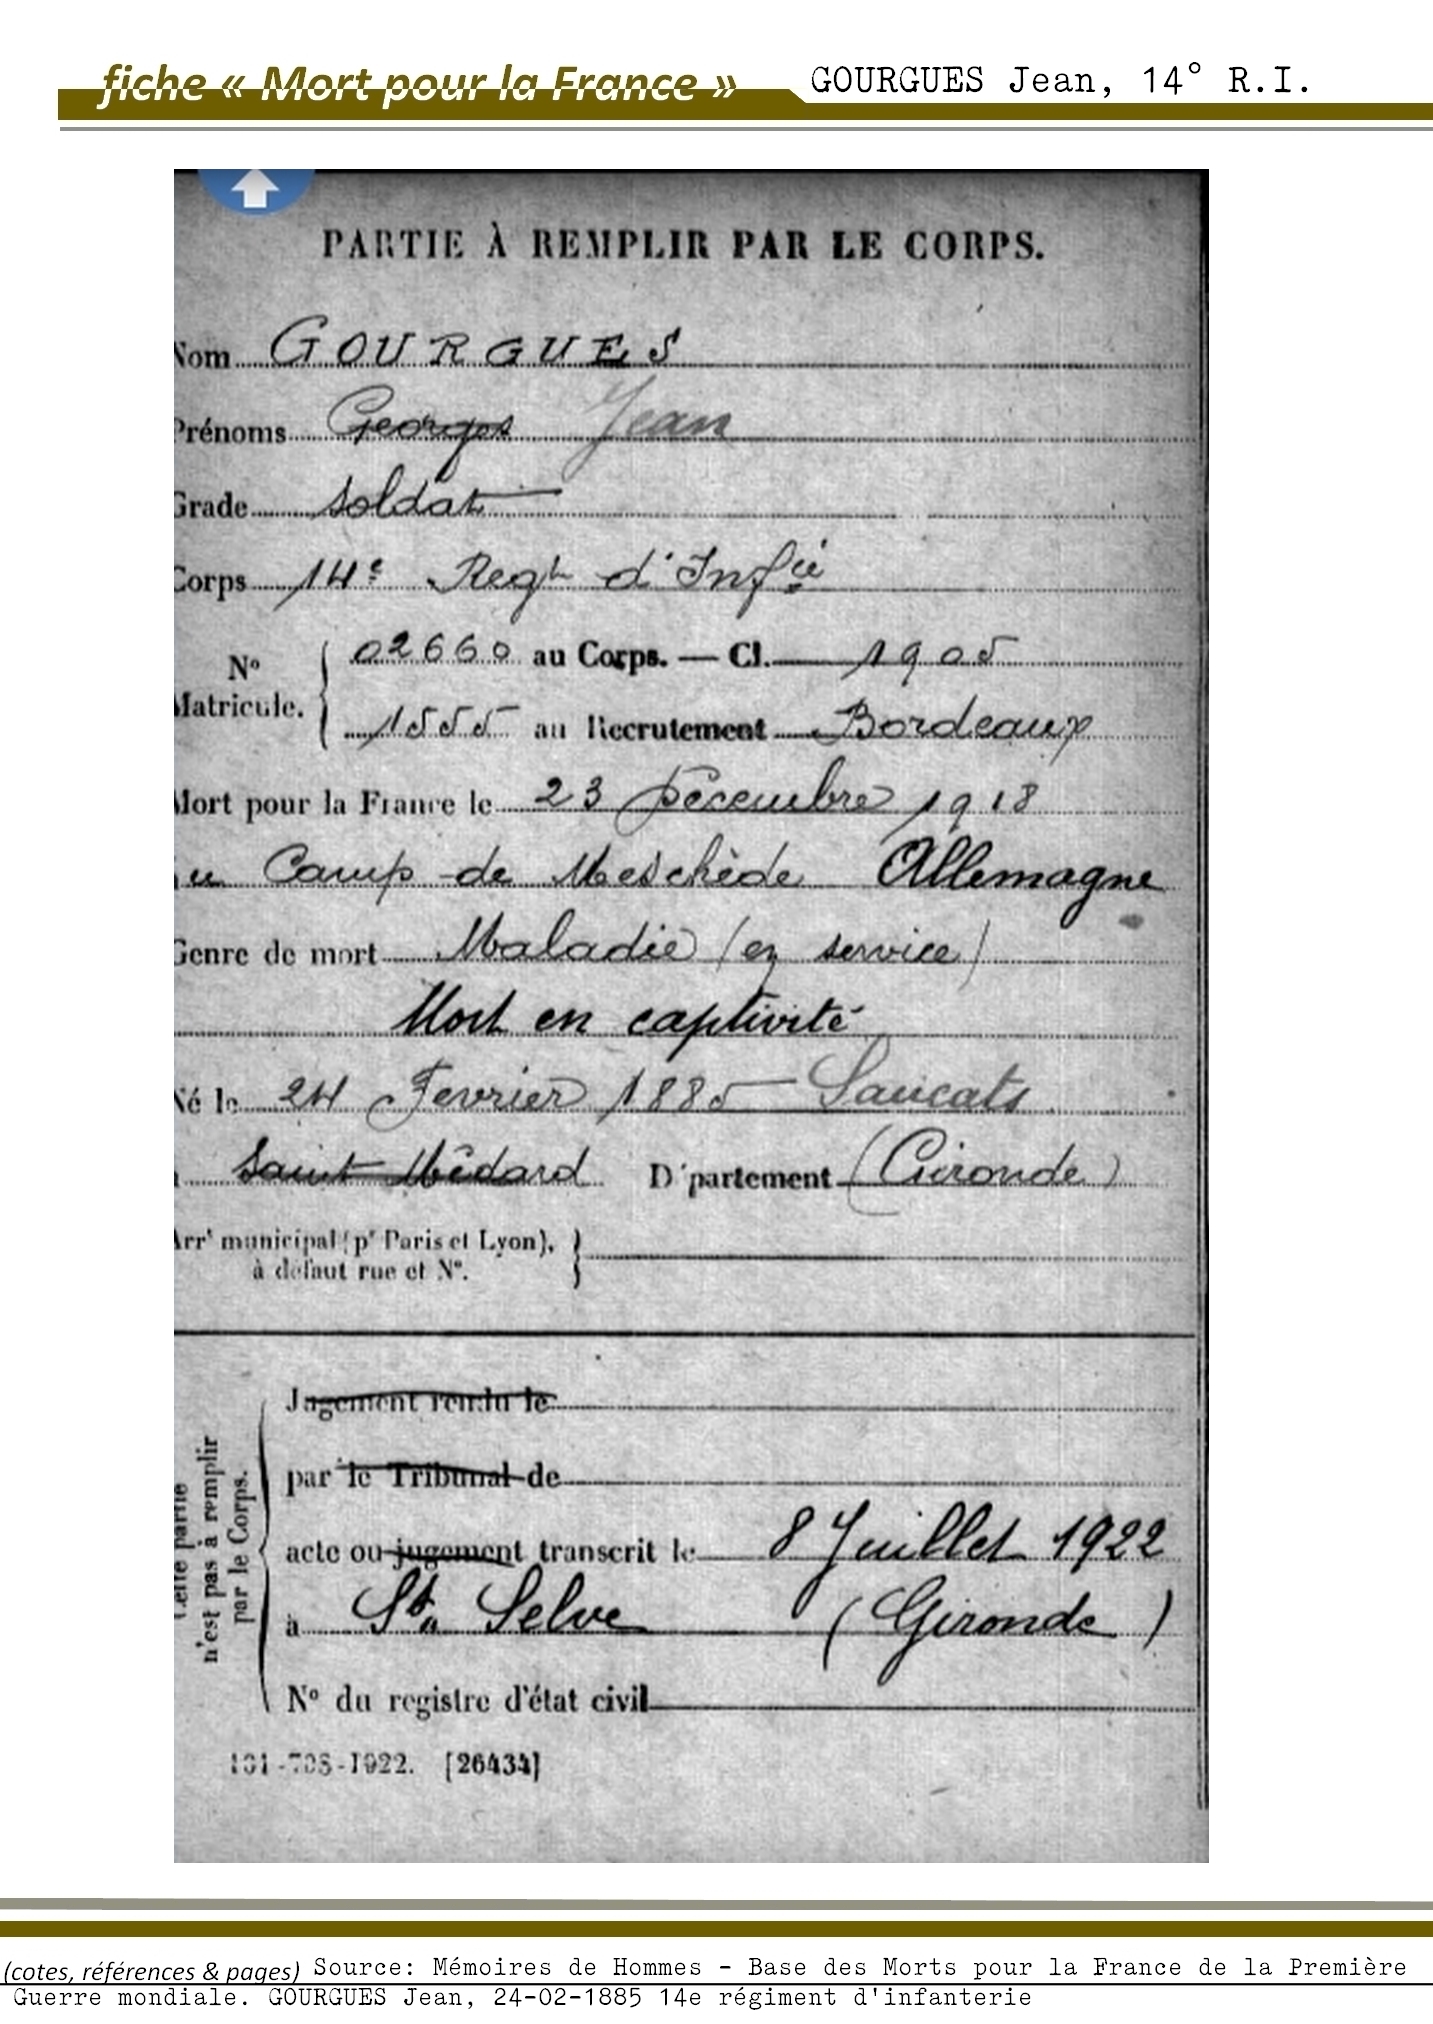 fiche « Mort pour la France »
GOURGUES Jean, 14° R.I.
PARTIE À REMPLIR PAR LE CORPS.
Nom GOURGUES
Prénoms Georges Jean
Grade soldat
Corps 14e Regt d'Infie
No Matricule. 02660 au Corps. — Cl. 1905
1555 au Recrutement Bordeaux
Mort pour la France le 23 Décembre 1918
au Camp de Meschède Allemagne
Genre de mort Maladie (en service)
Mort en captivité
Né le 24 Fevrier 1885 Saucats
Saint-Médard D'partement (Gironde)
Arrt municipal (pr Paris et Lyon),
à défaut rue et No.
Cette partie
n'est pas à remplir
par le Corps.
Jugement rendu le
par le Tribunal de
acte ou jugement transcrit le 8 Juillet 1922
à Ste Selve (Gironde)
No du registre d'état civil
101-708-1922. [26434]
(cotes, références & pages) Source: Mémoires de Hommes - Base des Morts pour la France de la Première
Guerre mondiale. GOURGUES Jean, 24-02-1885 14e régiment d'infanterie